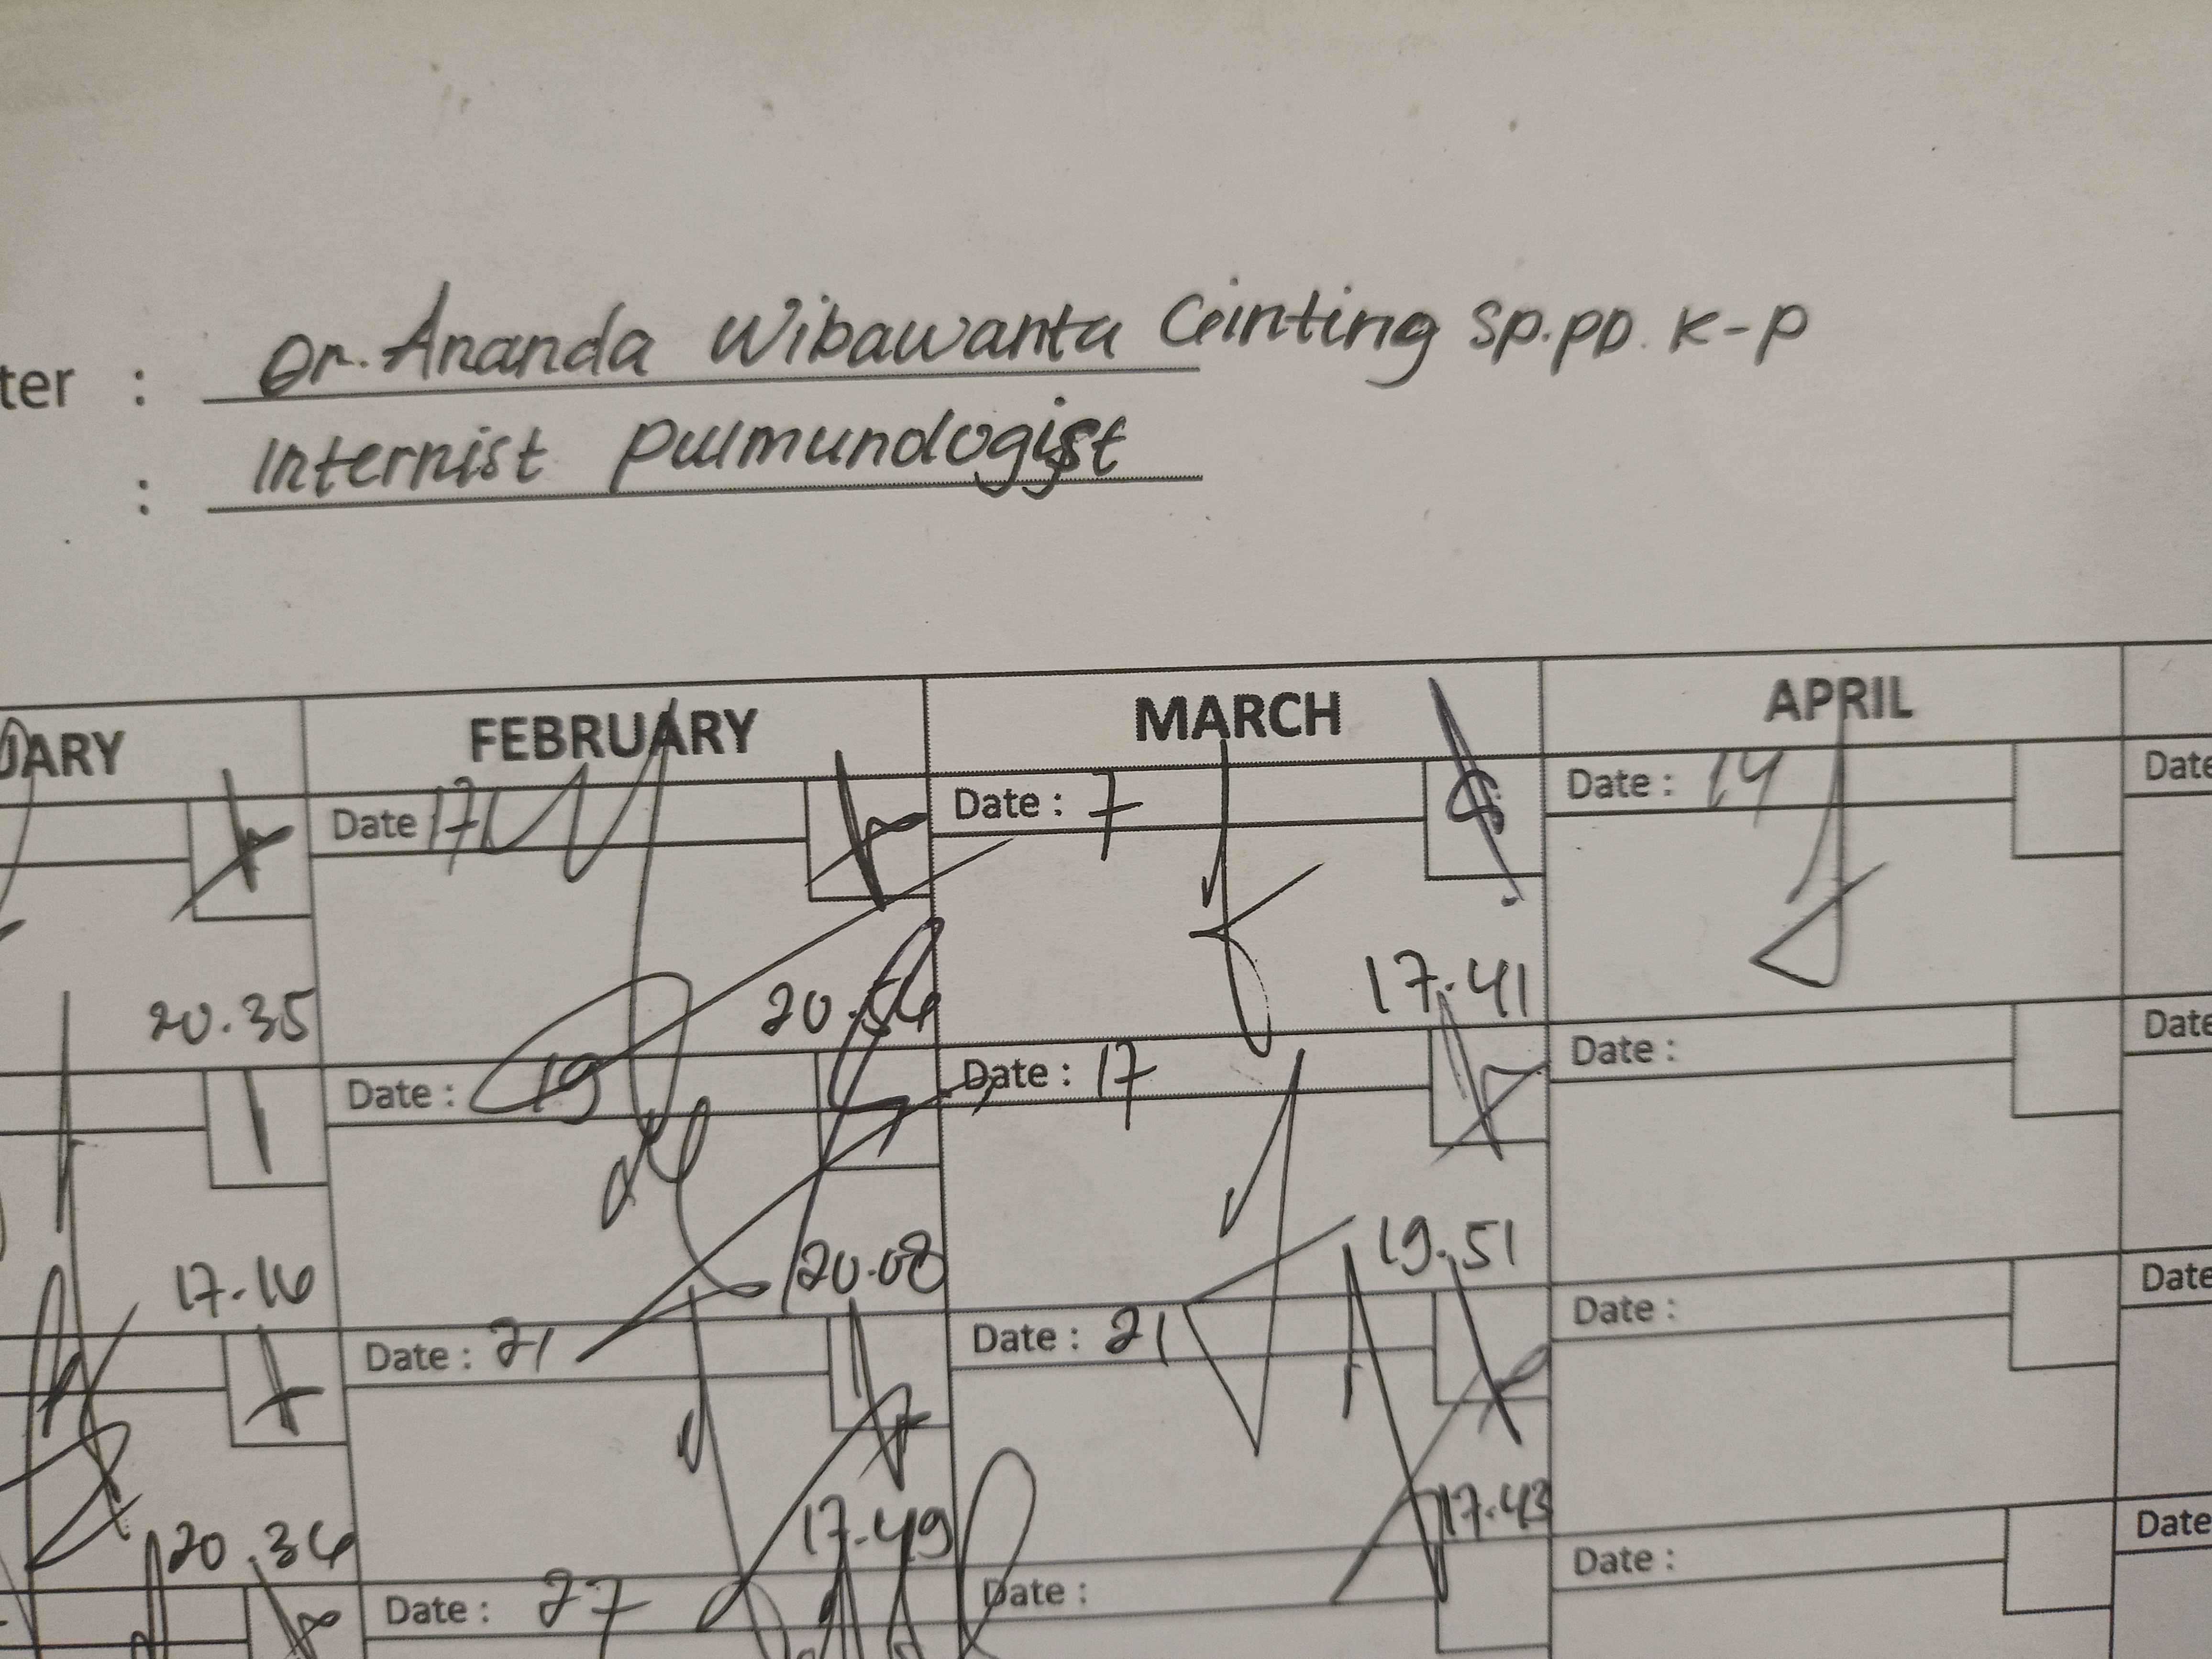 ter : Dr. Ananda Wibawanta Ginting Sp.PD. K-P
: Internist Pulmundologist
UARY FEBRUARY MARCH APRIL
Date 17 Date : 7 Date : 14 Date
20.35 20. 17.41
Date : 19 Date : 17 Date : Date
17.16 20.08 19.51
Date : 21 Date : 21 Date : Date
20.34 17.49 17.43
Date : 27 Date : Date : Date